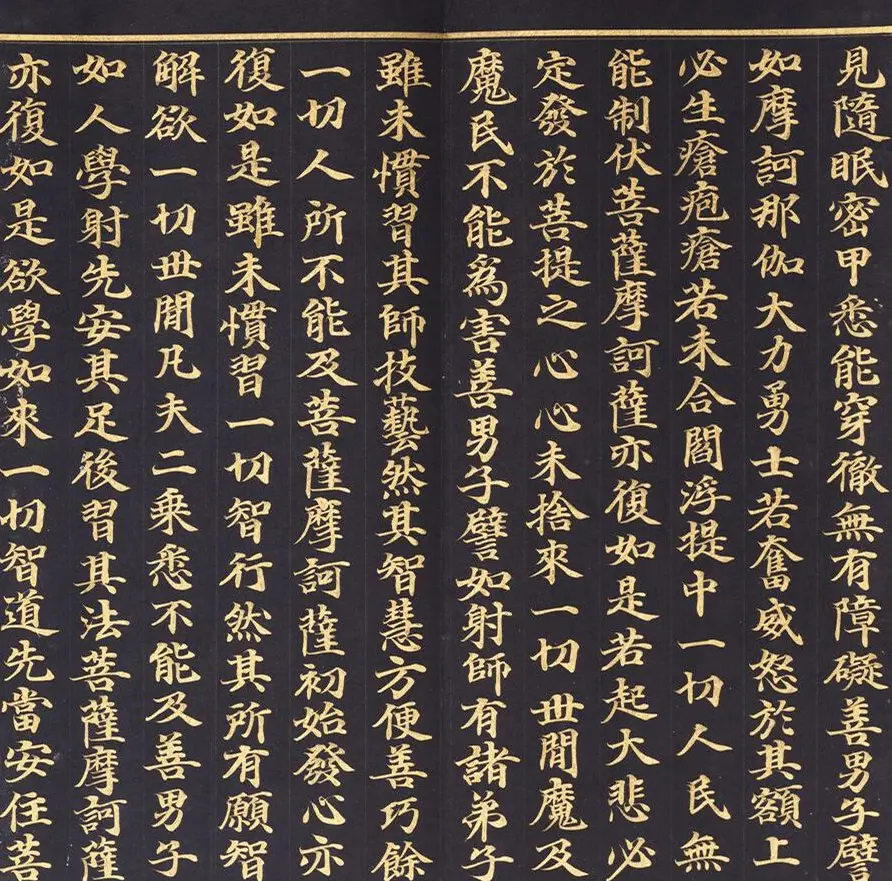 見隨眠密甲悉能穿徹無有障礙善男子譬
如摩訶那伽大力勇士若奮威怒於其額上
必生瘡疱瘡若未合閻浮提中一切人民無
能制伏菩薩摩訶薩亦復如是若起大悲必
定發於菩提之心心未捨來一切世間魔及
魔民不能爲害善男子譬如射師有諸弟子
雖未慣習其師技藝然其智慧方便善巧餘
一切人所不能及菩薩摩訶薩初始發心亦
復如是雖未慣習一切智行然其所有願智
解欲一切世間凡夫二乘悉不能及善男子
如人學射先安其足後習其法菩薩摩訶薩
亦復如是欲學如來一切智道先當安住菩